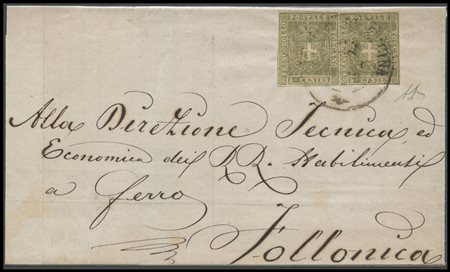 POSTALE POSTALE
5 CENTES 5 CENTES
Alla Direzione Tecnica ed
Economica dei RR. Stabilimenti
a ferro
Follonica